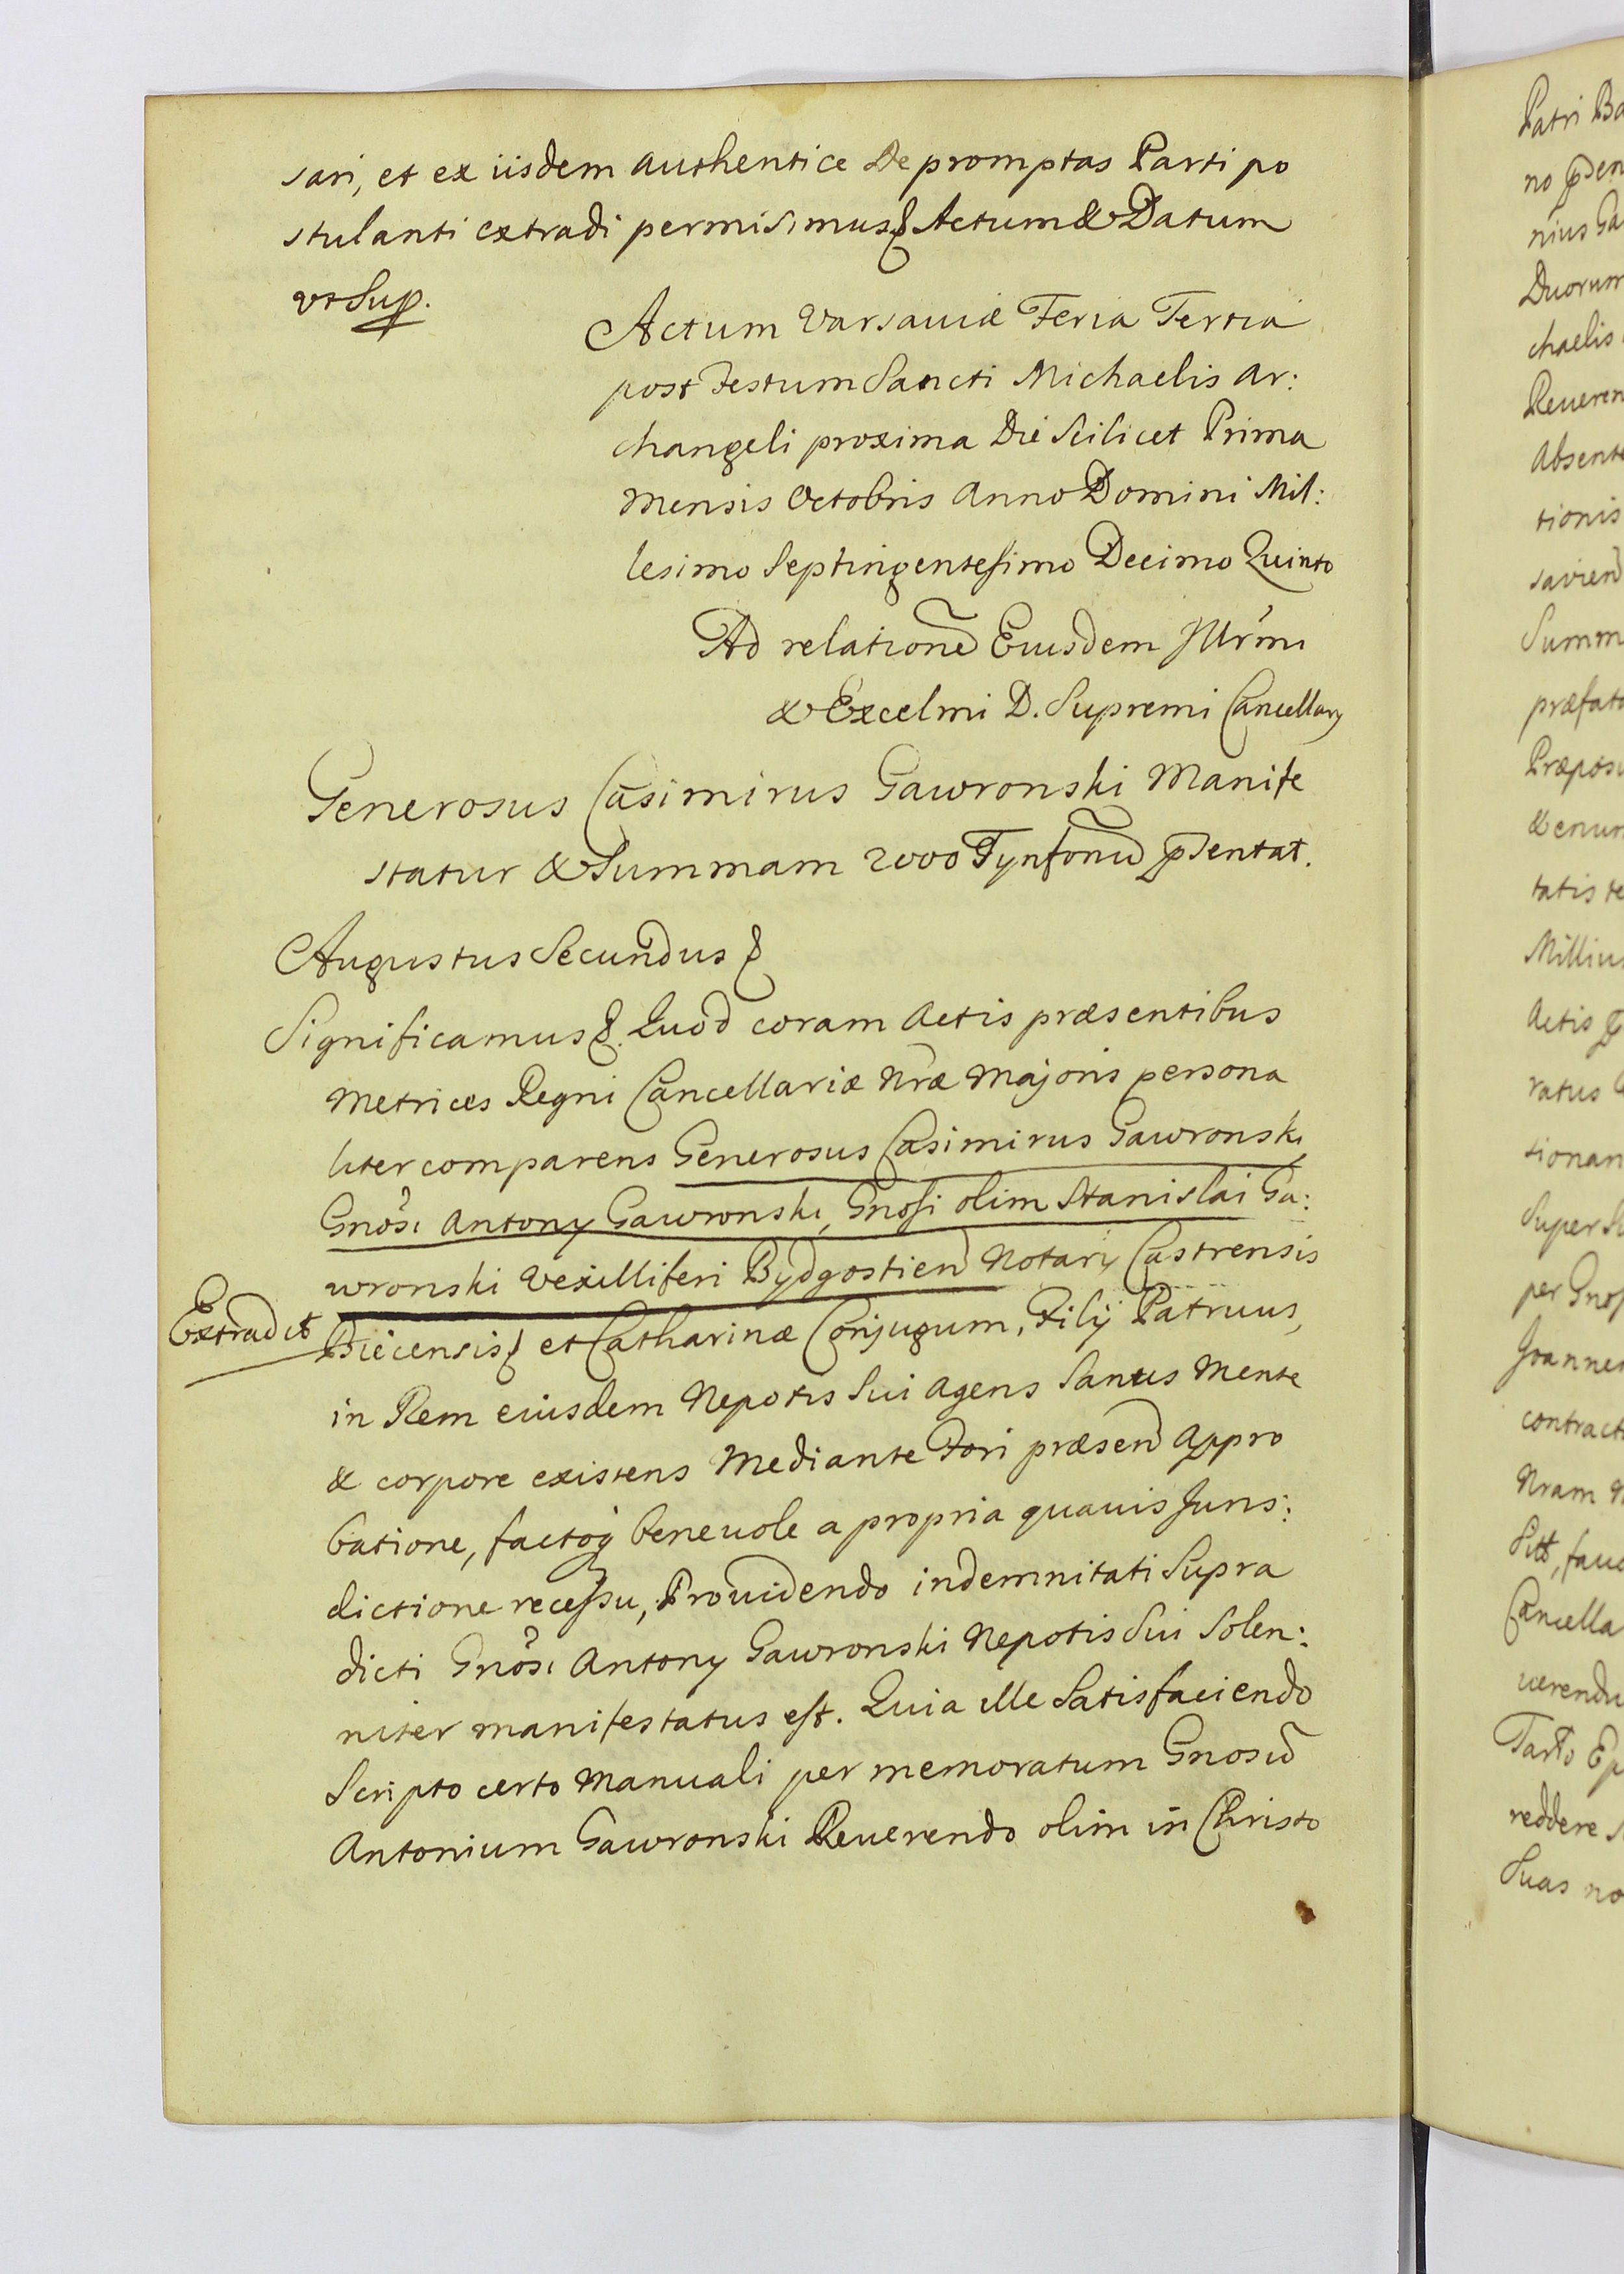 sari, et ex iisdem authentice De promptas Parti po
stulanti extradi permisimus & Actum & Datum
vt Sup.
Actum Varsauiæ Feria Tertia
post Festum Sancti Michaelis Ar:
changeli proxima Die Scilicet Prima
Mensis Octobris Anno Domini Mil:
lesimo Septingentesimo Decimo Quinto
Ad relationē Eiusdem Jllr̃mi
& Excelmi D. Supremi Cancellarÿ
Generosus Casimirus Gawronski Manife
statur & Summam 2000 Tynfonū pñsentat.
Augustus Secundus &
Significamus &. Quod coram Actis præsentibus
Metrices Regni Cancellariæ Nræ Majoris persona
liter comparens Generosus Casimirus Gawronski
Gnosi Antony Gawronski, Gnosi olim Stanislai Ga:
wronski Vexilliferi Bydgostien Notarÿ Castrensis
Extradit
Biecensis & et Catharinæ Conjugum, Filÿ Patruus,
in Rem eiusdem Nepotis Sui Agens Sanus Mente
& corpore existens Mediante Fori præsen Appro
batione, factoq̃ beneuole a propria quauis Juris:
dictione recessu, Prouidendo indemnitati Supra
dicti Gnosi Antony Gawronski Nepotis Sui Solen:
niter manifestatus est. Quia ille Satisfaciendo
Scripto certo Manuali per memoratum Gnosū
Antonium Gawronski Reuerendo olim in Christo
Patri Ba
nius Ga
Duorum
chaelis
Reueren
Absente
tionis
Summ
præfato
Præposi
& enum
tatis te
Milliu
Actis
ratus
tionan
Super Sc
per Gnos
Joannem
contract
Nram
Cancella
uerendu
reddere s
Suas no